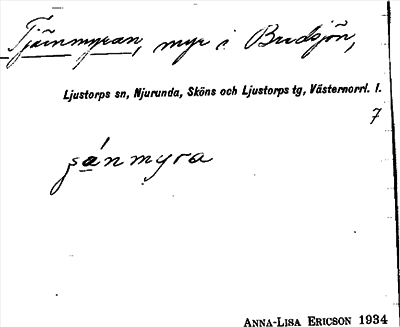 Tjärnmyran, myr i Bredsjön,
Ljustorps sn, Njurunda, Sköns och Ljustorps tg, Västernorrl. l.
7
ANNA-LISA ERICSON 1934